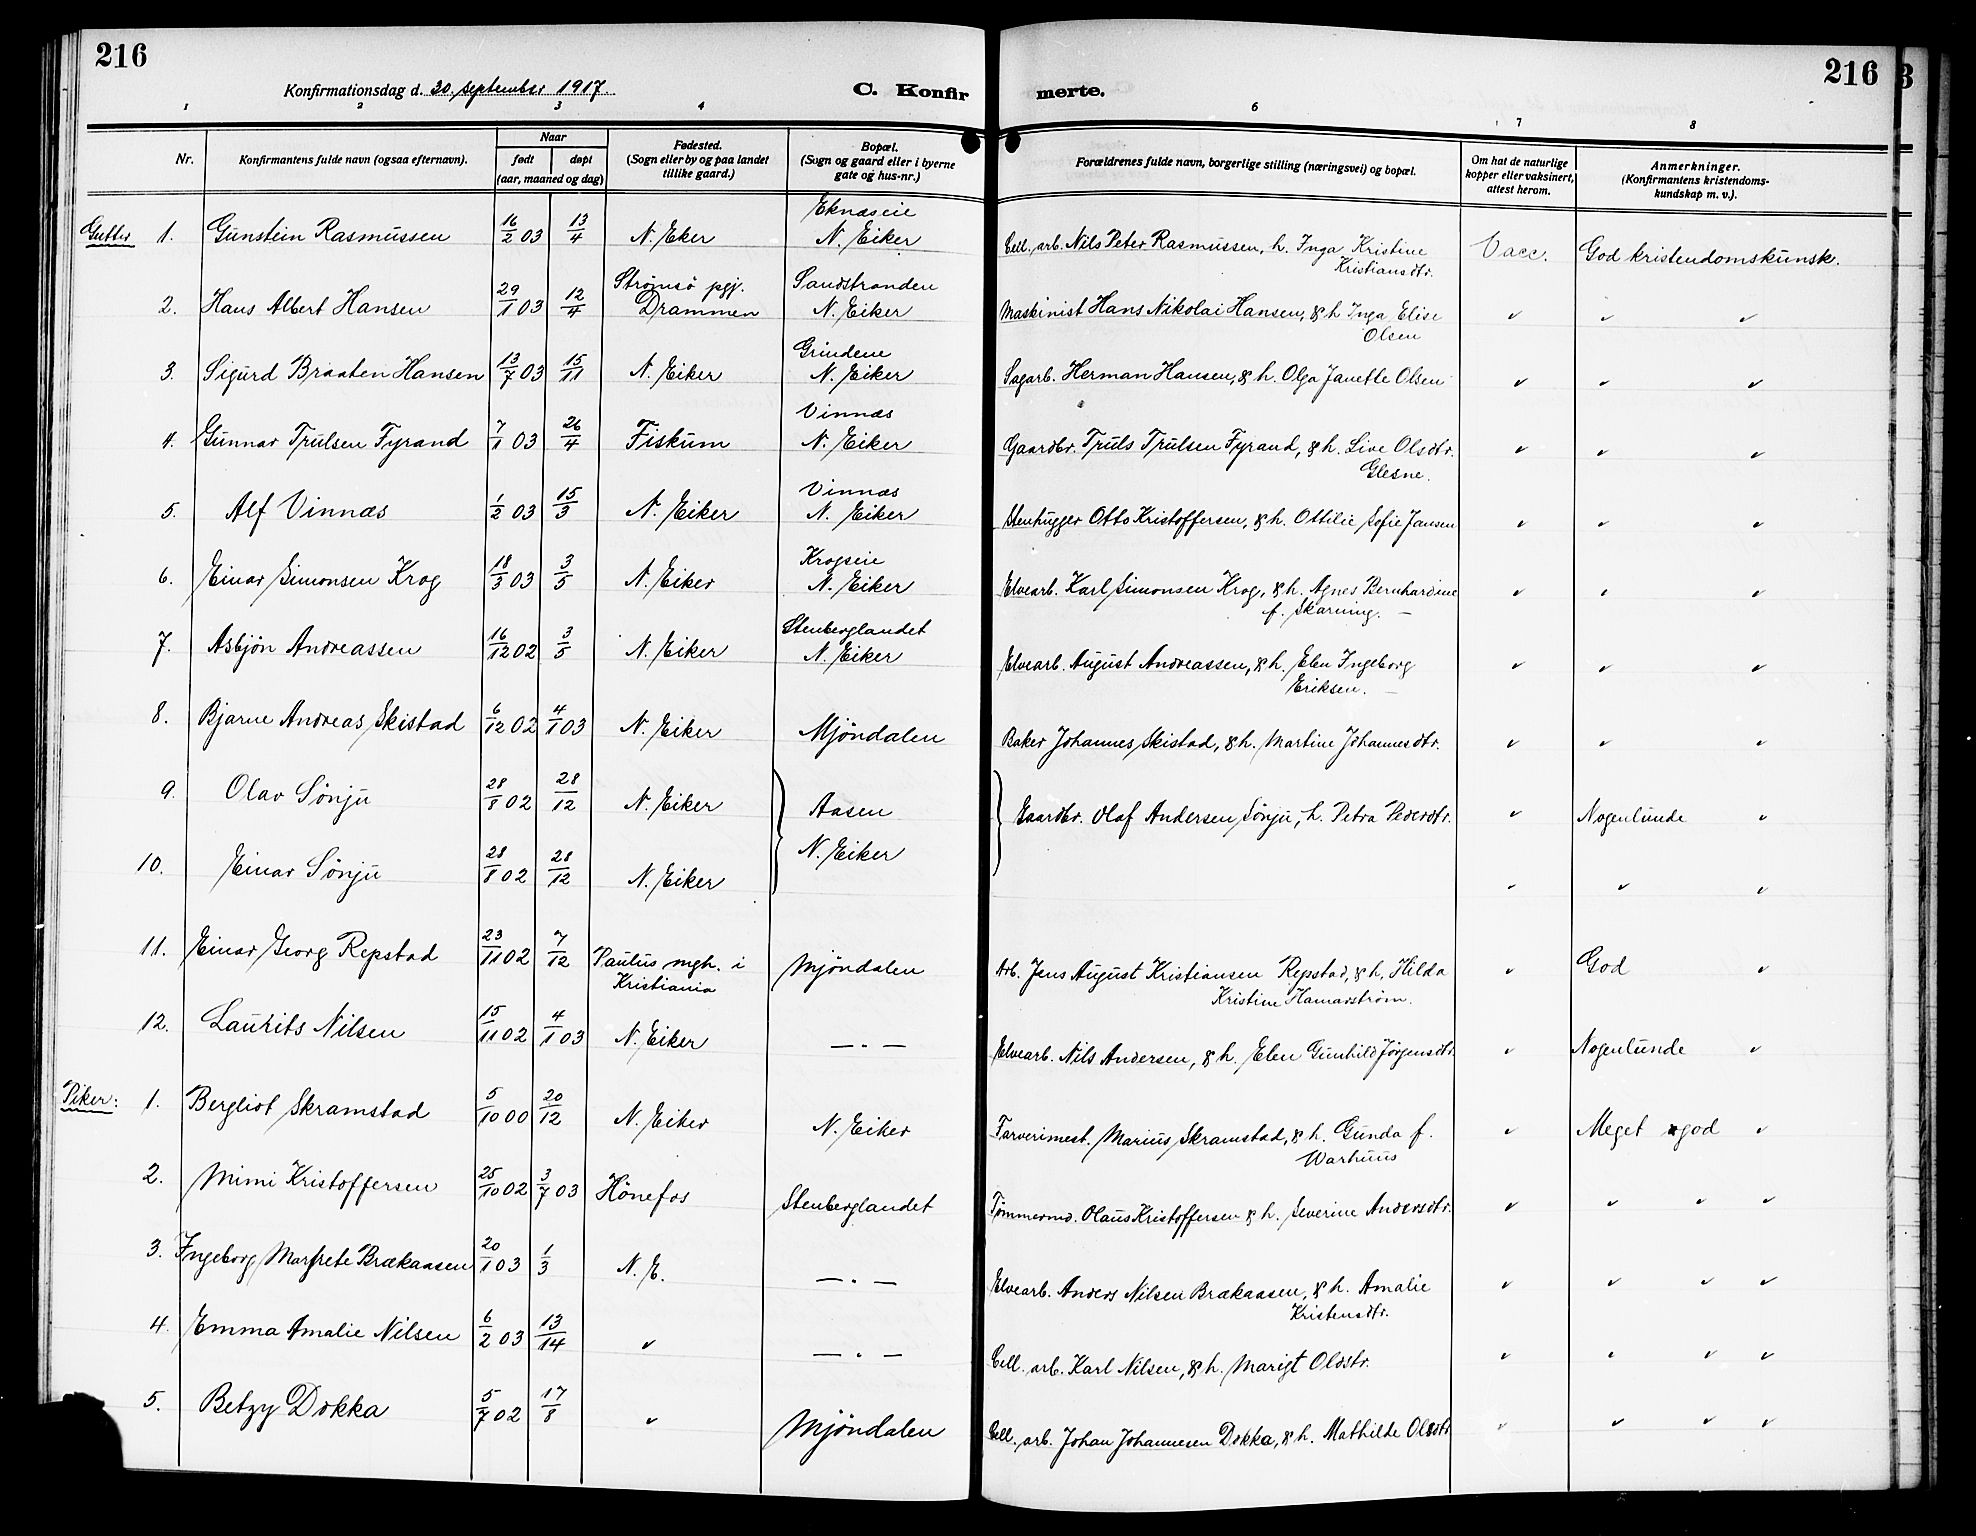 216
216
Konfirmationsdag d. 30. september 1917.
C. Konfirmerte.
1 2 3 4 6 7 8
Nr.
Konfirmantens fulde navn (ogsaa efternavn).
Naar
født døpt
(aar, maaned og dag)
Fødested.
(Sogn eller by og paa landet
tillike gaard.)
Bopæl.
(Sogn og gaard eller i byerne
gate og hus-nr.)
Forældrenes fulde navn, borgerlige stilling (næringsvei) og bopæl.
Om hat de naturlige
kopper eller vaksinert,
attest herom.
Anmerkninger.
(Konfirmantens kristendoms-
kundskap m. v.).
Gutter 1. Gunstein Rasmussen 16/2 03 13/4 N. Eker Eknæseie N. Eiker Cell. arb. Nils Peter Rasmussen, h. Inga Kristine Kristiansdtr. Vacc. God kristendomskunsk.
2. Hans Albert Hansen 29/1 03 12/4 Strømsø pgj. Drammen Sandstranden N. Eiker Maskinist Hans Nikolai Hansen, & h Inga Elise Olsen " " "
3. Sigurd Braaten Hansen 13/7 03 15/11 N. Eiker Grindene N. Eiker Sagarb. Herman Hansen, & h. Olga Janette Olsen " " "
4. Gunnar Trulsen Fyrand 7/1 03 26/4 Fiskum Vinnæs N. Eiker Gaardbr. Truls Trulsen Fyrand, & h. Live Olsdtr. Glesne. " " "
5. Alf Vinnæs 1/2 03 15/3 N. Eiker Vinnæs N. Eiker Stenhugger Otto Kristoffersen, & h. Ottilie Sofie Jansen " " "
6. Einar Simonsen Krog 18/3 03 3/5 N. Eiker Krogseie N. Eiker Elvearb. Karl Simonsen Krog, & h. Agnes Bernhardine f. Skarning. — " " "
7. Asbjøn Andreassen 16/12 02 3/5 N. Eiker Stenberglandet N. Eiker Elvearb. August Andreassen, & h. Elen Ingeborg Eriksen. — " " "
8. Bjarne Andreas Skistad 6/12 02 4/1 03 N. Eiker Mjøndalen Baker Johannes Skistad, & h. Martine Johannesdtr. " " "
9. Olav Sønju 28/8 02 28/12 N. Eiker Aasen Gaardbr. Olaf Andersen Sønju, h. Petra Pedersdtr. " Nogenlunde "
10. Einar Sønju 28/8 02 28/12 N. Eiker N. Eiker " " "
11. Einar Georg Repstad 23/11 02 7/12 Paulus mgh. i Kristiania Mjøndalen Arb. Jens August Kristiansen Repstad, & h. Hilda Kristine Hamarstrøm. " God "
12. Laurits Nilsen 15/11 02 4/1 03 N. Eiker — " — Elvearb. Nils Andersen, & h. Elen Gunhild Jørgensdtr. " Nogenlunde "
Piker: 1. Bergliot Skramstad 5/10 00 20/12 N. Eiker N. Eiker Farverimest. Marius Skramstad, & h. Gunda f. Warhuus " Meget god "
2. Mimi Kristoffersen 25/10 02 3/7 03 Hønefos Stenberglandet Tømmermd. Olaus Kristoffersen & h. Severine Andersdtr. " " " "
3. Ingeborg Margrete Brækaasen 20/1 03 1/3 N. E. — " — Elvearb. Anders Nilsen Brækaasen, & h. Amalie Kristensdtr. " " " "
4. Emma Amalie Nilsen 6/2 03 13/14 " — " — Cell. arb. Karl Nilsen, & h. Marigt Olsdtr. " " " "
5. Betzy Dokka 5/7 02 17/8 " Mjøndalen Cell. arb. Johan Johannesen Dokka, & h. Mathilde Olsdtr. " " " "